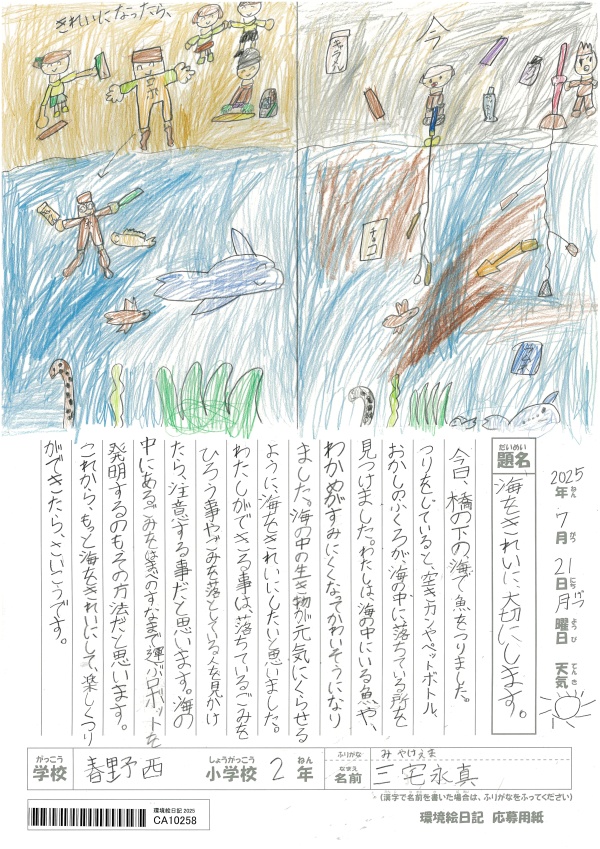 きれいになったら、
今
チョコ
2025年ねん 7月がつ 21日にち 月げつ曜日ようび 天気てんき
題名だいめい 海をきれいに、大切にします。
今日、橋の下の海で魚をつりました。
つりをしていると、空きカンやペットボトル、
おかしのふくろが海の中に落ちている所を
見つけました。わたしは、海の中にいる魚や、
わかめがすみにくくなってかわいそうになり
ました。海の中の生き物が元気にくらせる
ように、海をきれいにしたいと思いました。
わたしができる事は、落ちているごみを
ひろう事やごみを落としている人を見かけ
たら、注意する事だと思います。海の
中にあるごみをはまべのすなまで運ぶロボットを
発明するのもその方法だと思います。
これから、もっと海をきれいにして、楽しくつり
ができたら、さいこうです。
学校がっこう 春野西 小学校しょうがっこう 2年ねん
ふりがな みやけえま
名前なまえ 三宅永真
(漢字で名前を書いた場合は、ふりがなをふってください)
環境絵日記 2025
CA10258
環境絵日記 応募用紙